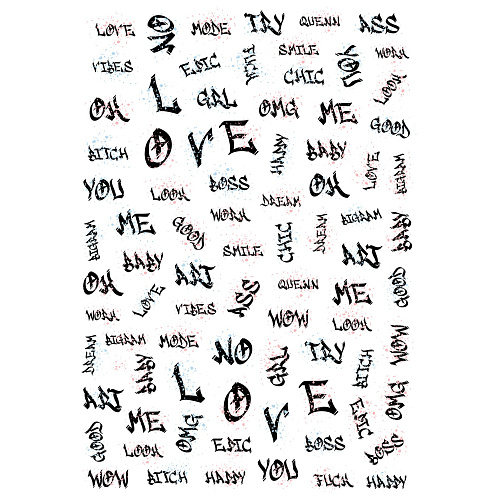 LOVE NO MODE TRY QUENN ASS
VIBES EPIC SMILE YOU WORK
CHIC LOOK
OH L GRL OMG ME GOOD
O V E
BITCH HAPPY BABY LOVE
YOU LOOK BOSS OH
DREAM
ME GOOD WORK CHIC DREAM BABY
SMILE ART
BABY
OH ART ASS QUENN ME GOOD
WORK LOVE VIBES WOW LOOK
DREAM MODE NO GRL TRY WOW
BABY BITCH
ART L O V E OMG
GOOD ME OMG EPIC
LOOK EPIC BOSS BOSS
WOW BITCH HAPPY YOU FUCK HAPPY